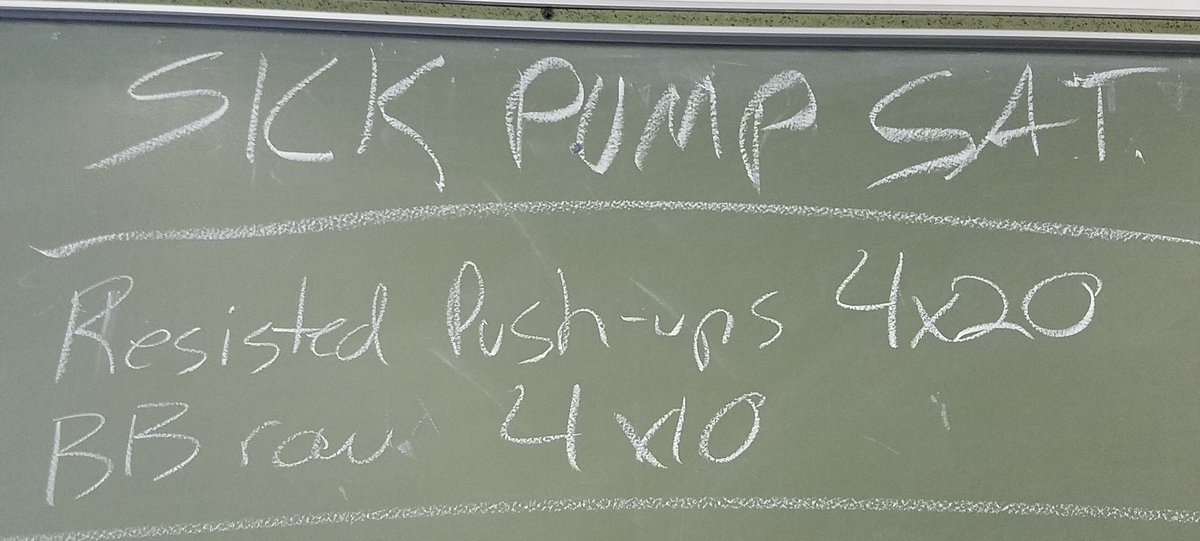 SICK PUMP SAT.
Resisted Push-ups 4x20
BB row 4x10